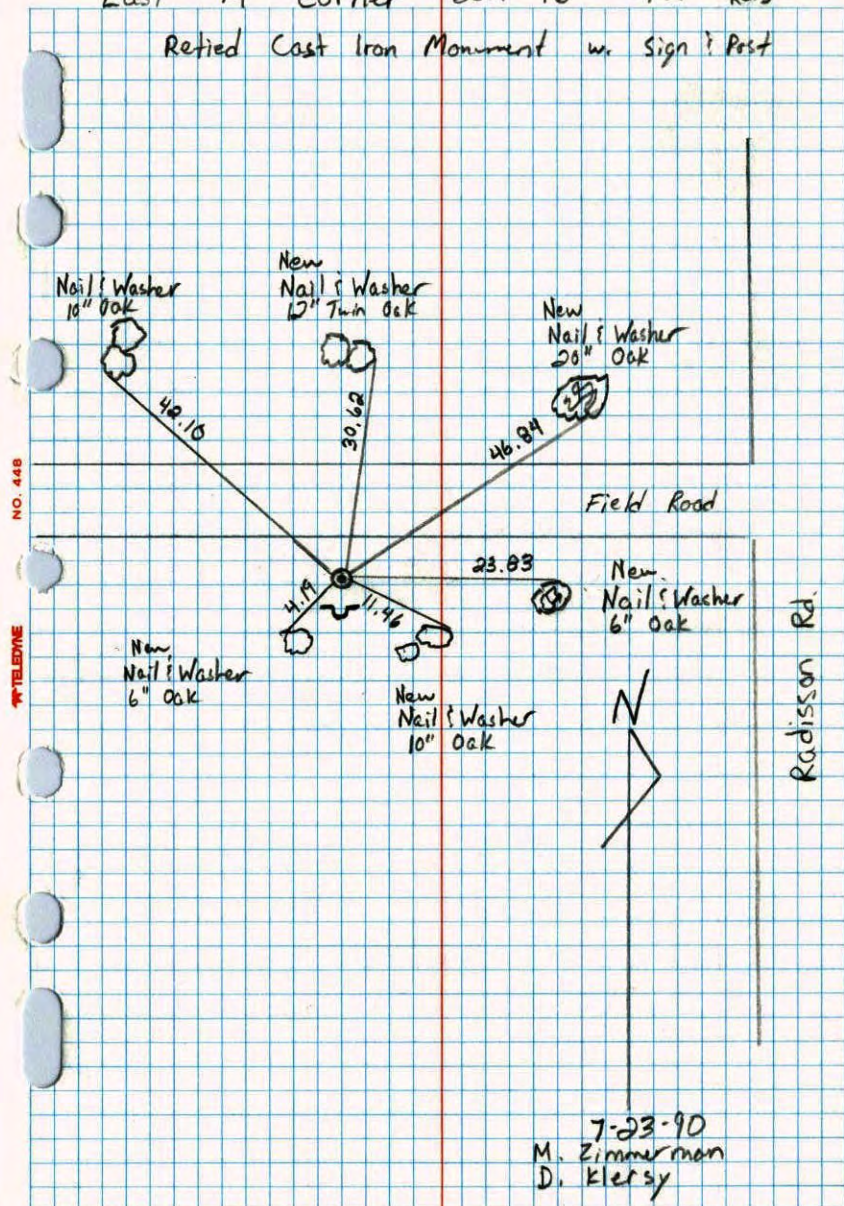 Retied Cast Iron Monument w. Sign & Post
Nail & Washer
10" Oak
New
Nail & Washer
12" Twin Oak
New
Nail & Washer
20" Oak
42.10
30.62
46.84
NO. 448
Field Road
23.83
New
Nail & Washer
6" Oak
4.19
11.46
TELEDYNE
New
Nail & Washer
6" Oak
New
Nail & Washer
10" Oak
N
Radisson Rd.
7-23-90
M. Zimmerman
D. Klersy